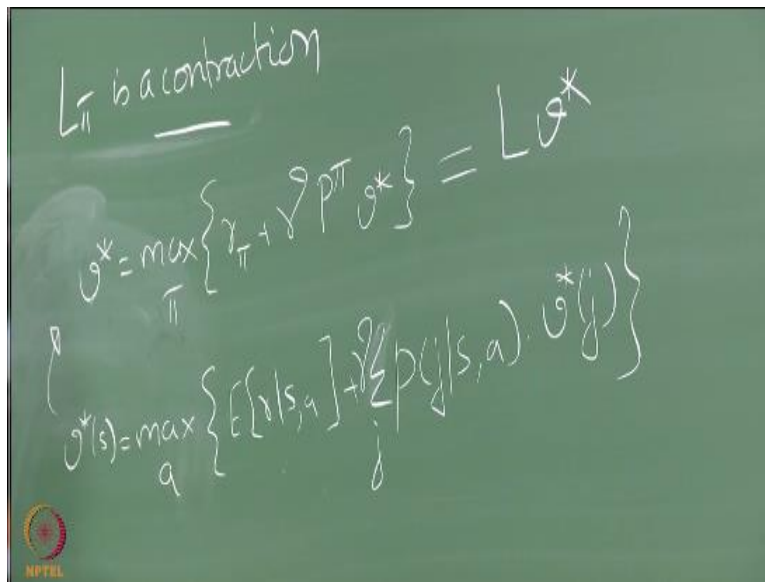 L_π is a contraction
v* = max_π { r_π + γ P^π v* } = L v*
v*(s) = max_a { E[r|s,a] + γ Σ_j p(j|s,a) . v*(j) }
NPTEL